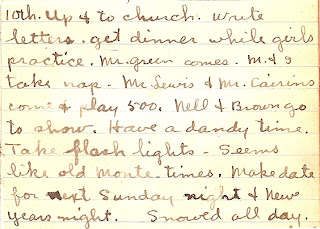 10th. Up & to church. Write
letters. get dinner while girls
practice. Mr. green comes. M. & I
take nap - Mr. Lewis & Mr. Cairins
come & play 500. Nell & Brown go
to show. Have a dandy time.
Take flash lights - Seems
like old Monte-times. Make date
for next Sunday night & New
years night. Snowed all day.